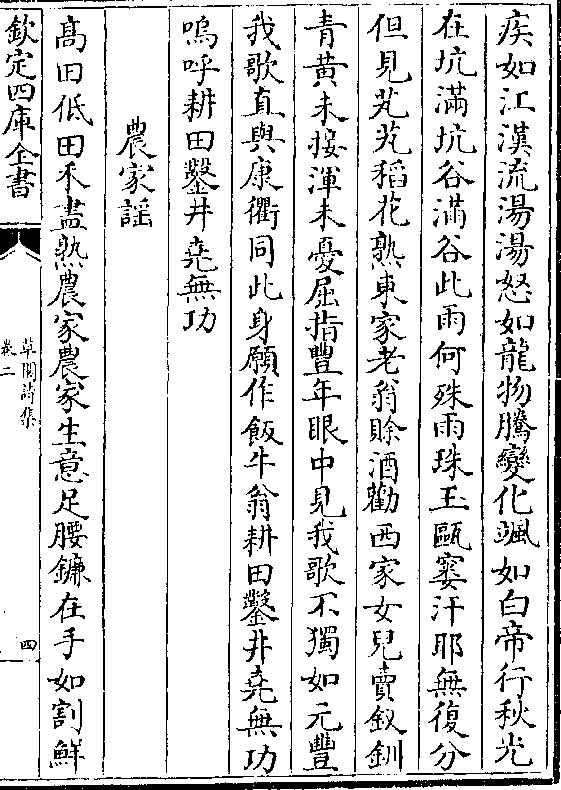 疾如江漢流湯湯怒如龍物騰變化颯如白帝行秋光
在坑滿坑谷滿谷此雨何殊雨珠玉甌窶汙耶無復分
但見芃芃稻花熟東家老翁賖酒勸西家女兒賣釵釧
青黃未接渾未憂屈指豐年眼中見我歌不獨如元豐
我歌直與康衢同此身願作飯牛翁耕田鑿井堯無功
嗚呼耕田鑿井堯無功
農家謡
髙田低田禾盡熟農家農家生意足腰鐮在手如割鮮
欽定四庫全書
草閣詩集
卷二
四